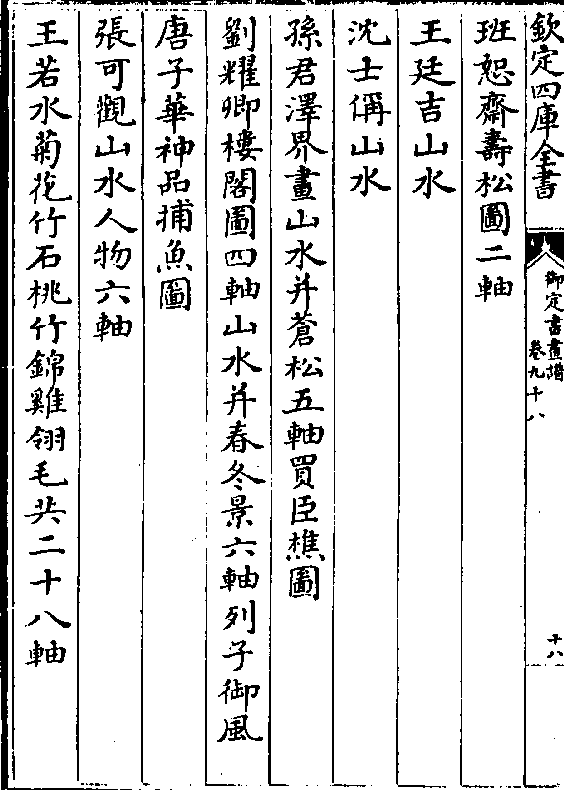 欽定四庫全書
御定書畫譜
卷九十八
十八
班恕齋壽松圖二軸
王廷吉山水
沈士偁山水
孫君澤界畫山水并蒼松五軸買臣樵圖
劉耀卿樓閣圖四軸山水并春冬景六軸列子御風
唐子華神品捕魚圖
張可觀山水人物六軸
王若水菊花竹石桃竹錦雞翎毛共二十八軸